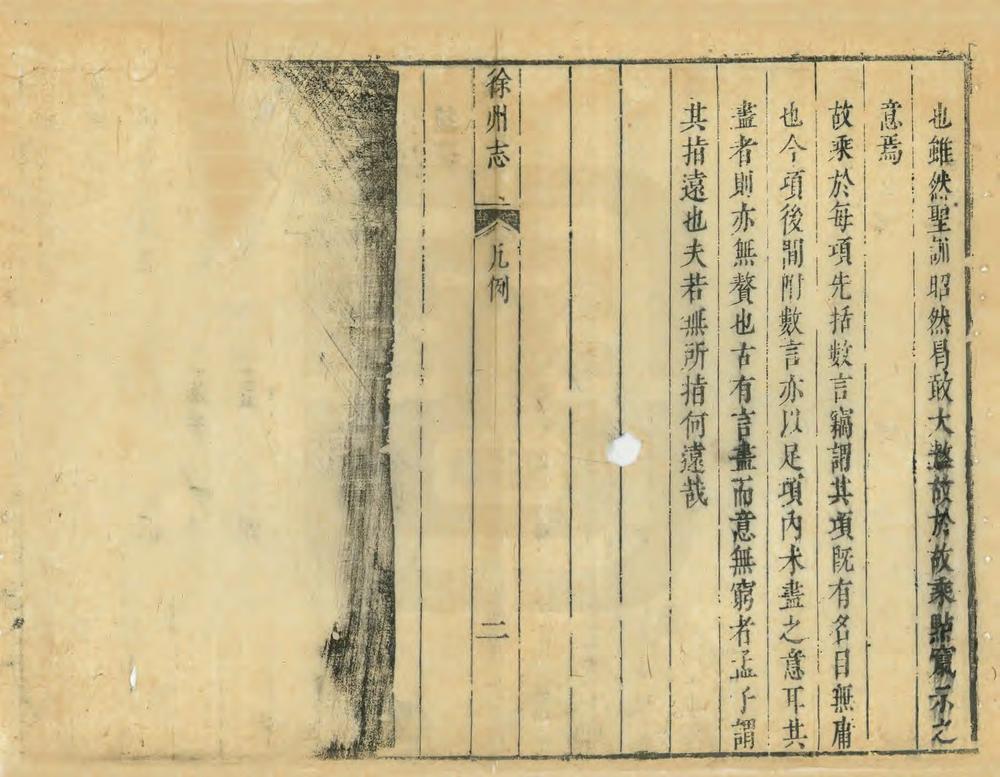 也雖然聖訓昭然曷敢大盭故於故乘點竄示之
意焉
故乘於每項先括數言竊謂其項既有名目無庸
也今項後間附數言亦以足項內未盡之意耳其
盡者則亦無贅也古有言盡而意無窮者孟子謂
其指遠也夫若無所指何遠哉
徐州志
凡例
二